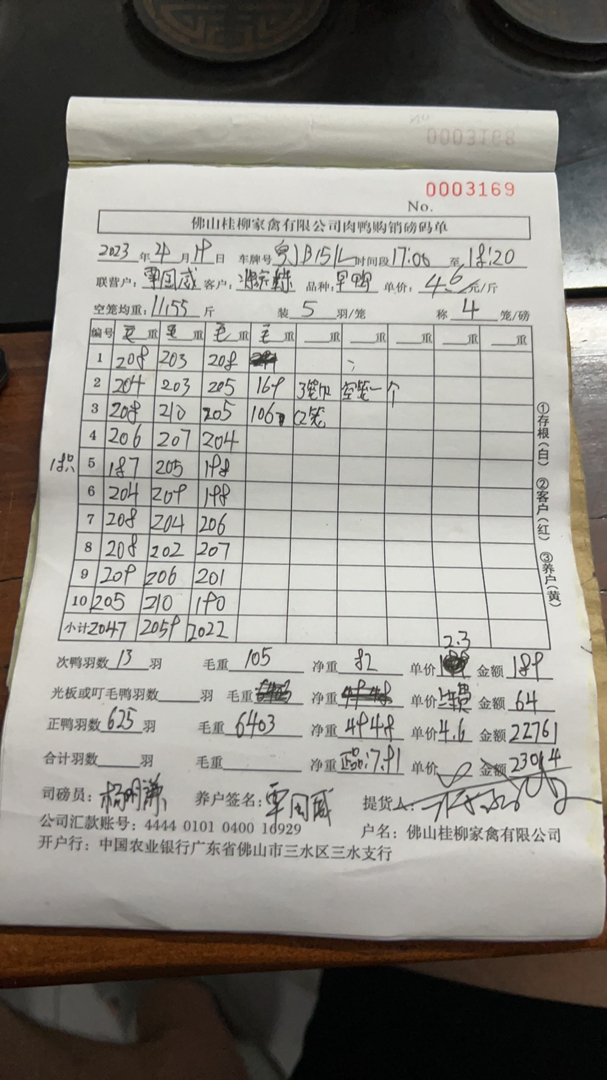 0003168
0003169
No.
佛山桂柳家禽有限公司肉鸭购销磅码单
2023年4月19日 车牌号 粤JB151L 时间段 17:06 至 18:20
联营户：覃国威 客户： 品种：早鸭 单价：4.6元/斤
空笼均重：11.55斤 装5羽/笼 称4笼/磅
编号 毛重 毛重 毛重 毛重 重 重 重 重
1 208 203 208
2 204 203 205 169 3笼 空笼一个
3 208 210 205 106 2笼
4 206 207 204
5 187 205 198
6 204 209 198
7 208 204 206
8 208 202 207
9 209 206 201
10 205 210 190
小计 2047 2059 2022
①存根(白) ②客户(红) ③养户(黄)
2.3
次鸭羽数 13 羽 毛重 105 净重 82 单价 金额 189
光板或叮毛鸭羽数 羽 毛重 净重 单价 金额 64
正鸭羽数 625 羽 毛重 6403 净重 4948 单价 4.6 金额 22761
合计羽数 羽 毛重 净重 7.91 单价 金额 23014
司磅员：杨明谦 养户签名：覃国威 提货人：
公司汇款账号：4444 0101 0400 16929 户名：佛山桂柳家禽有限公司
开户行：中国农业银行广东省佛山市三水区三水支行